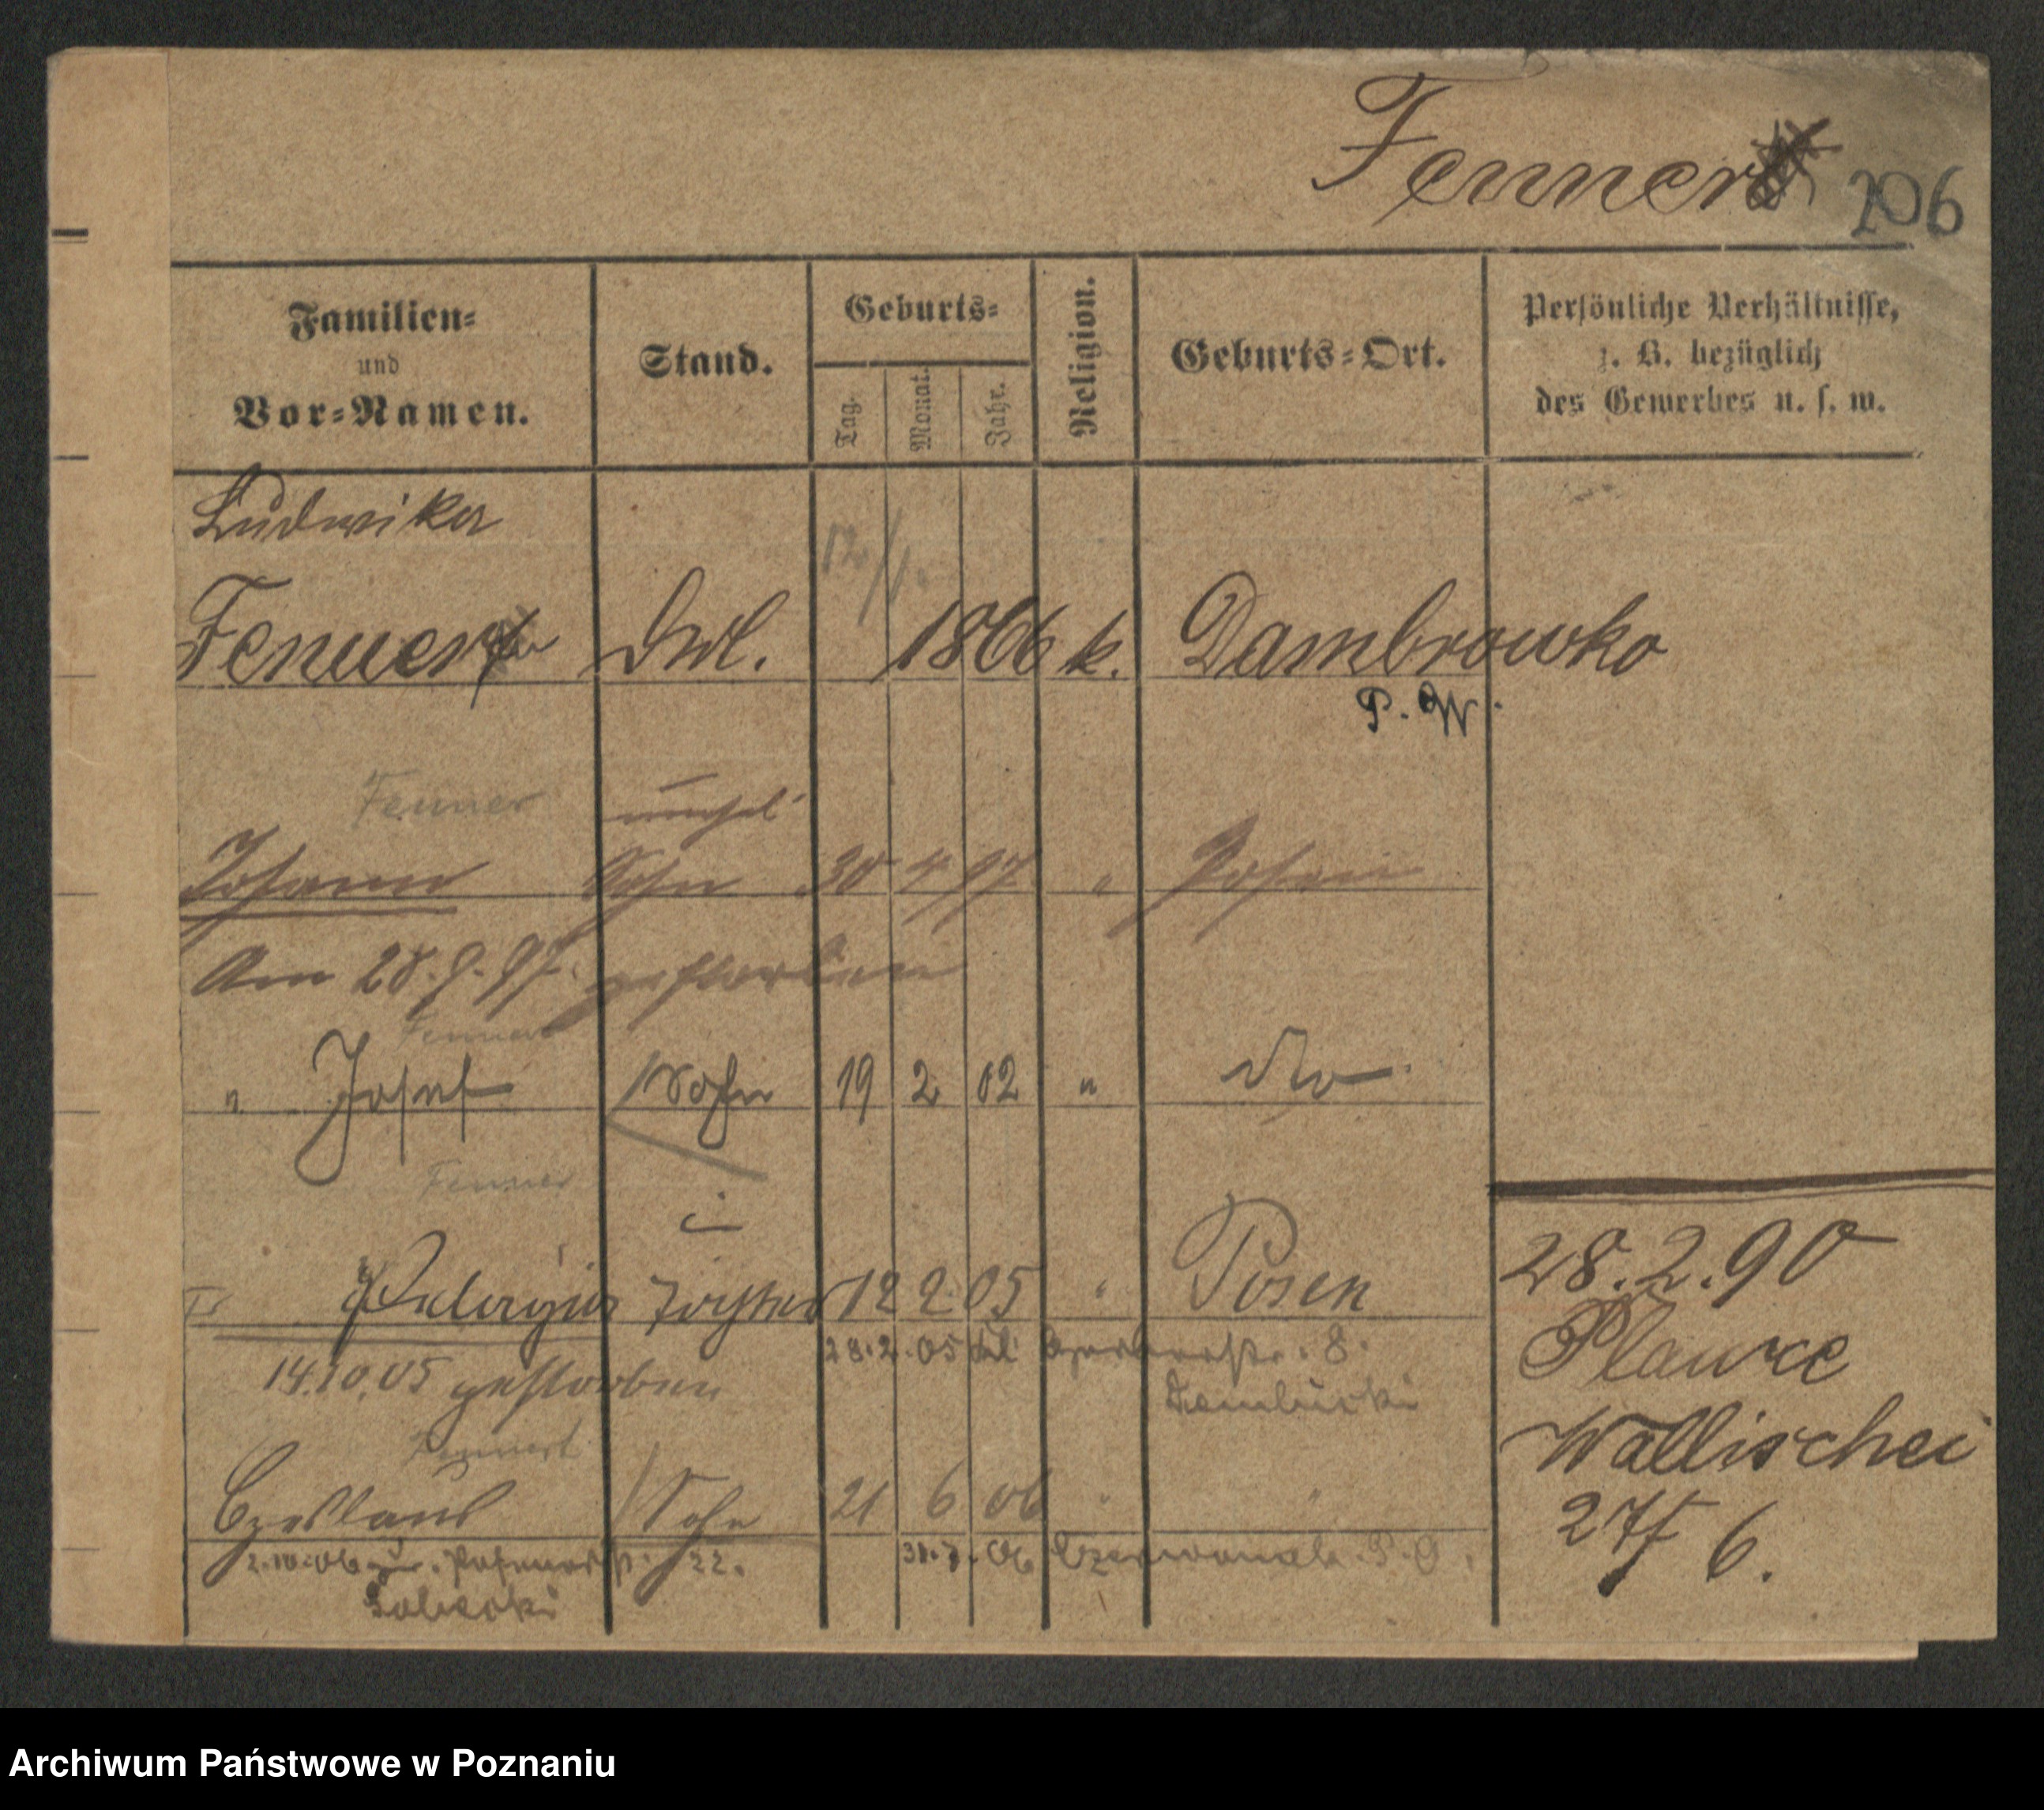 Fenner 206
Familien=
und
Vor=Namen.
Stand.
Geburts=
Tag.
Monat.
Jahr.
Religion.
Geburts=Ort.
Persönliche Verhältnisse,
z. B. bezüglich
des Gewerbes u. s. w.
Ludwika
12/1.
Fenner 1866 k. Dambrowko
P. W.
Fenner unehel
Johann Sohn 30 4 97 " Posen
Am 28.9.97. gestorben
Fennert
" Josef Sohn 19 2 02 "
Fenner
Pelagia Tochter 12 2 05 " Posen
28.2.05 8.
14.10.05 gestorben
Fennert
Czeslaus Sohn 21 6 06 "
2.10.06 22. 31.7.06 Czerwonak P. O.
28.2.90
Wallischei
27/6.
Archiwum Państwowe w Poznaniu